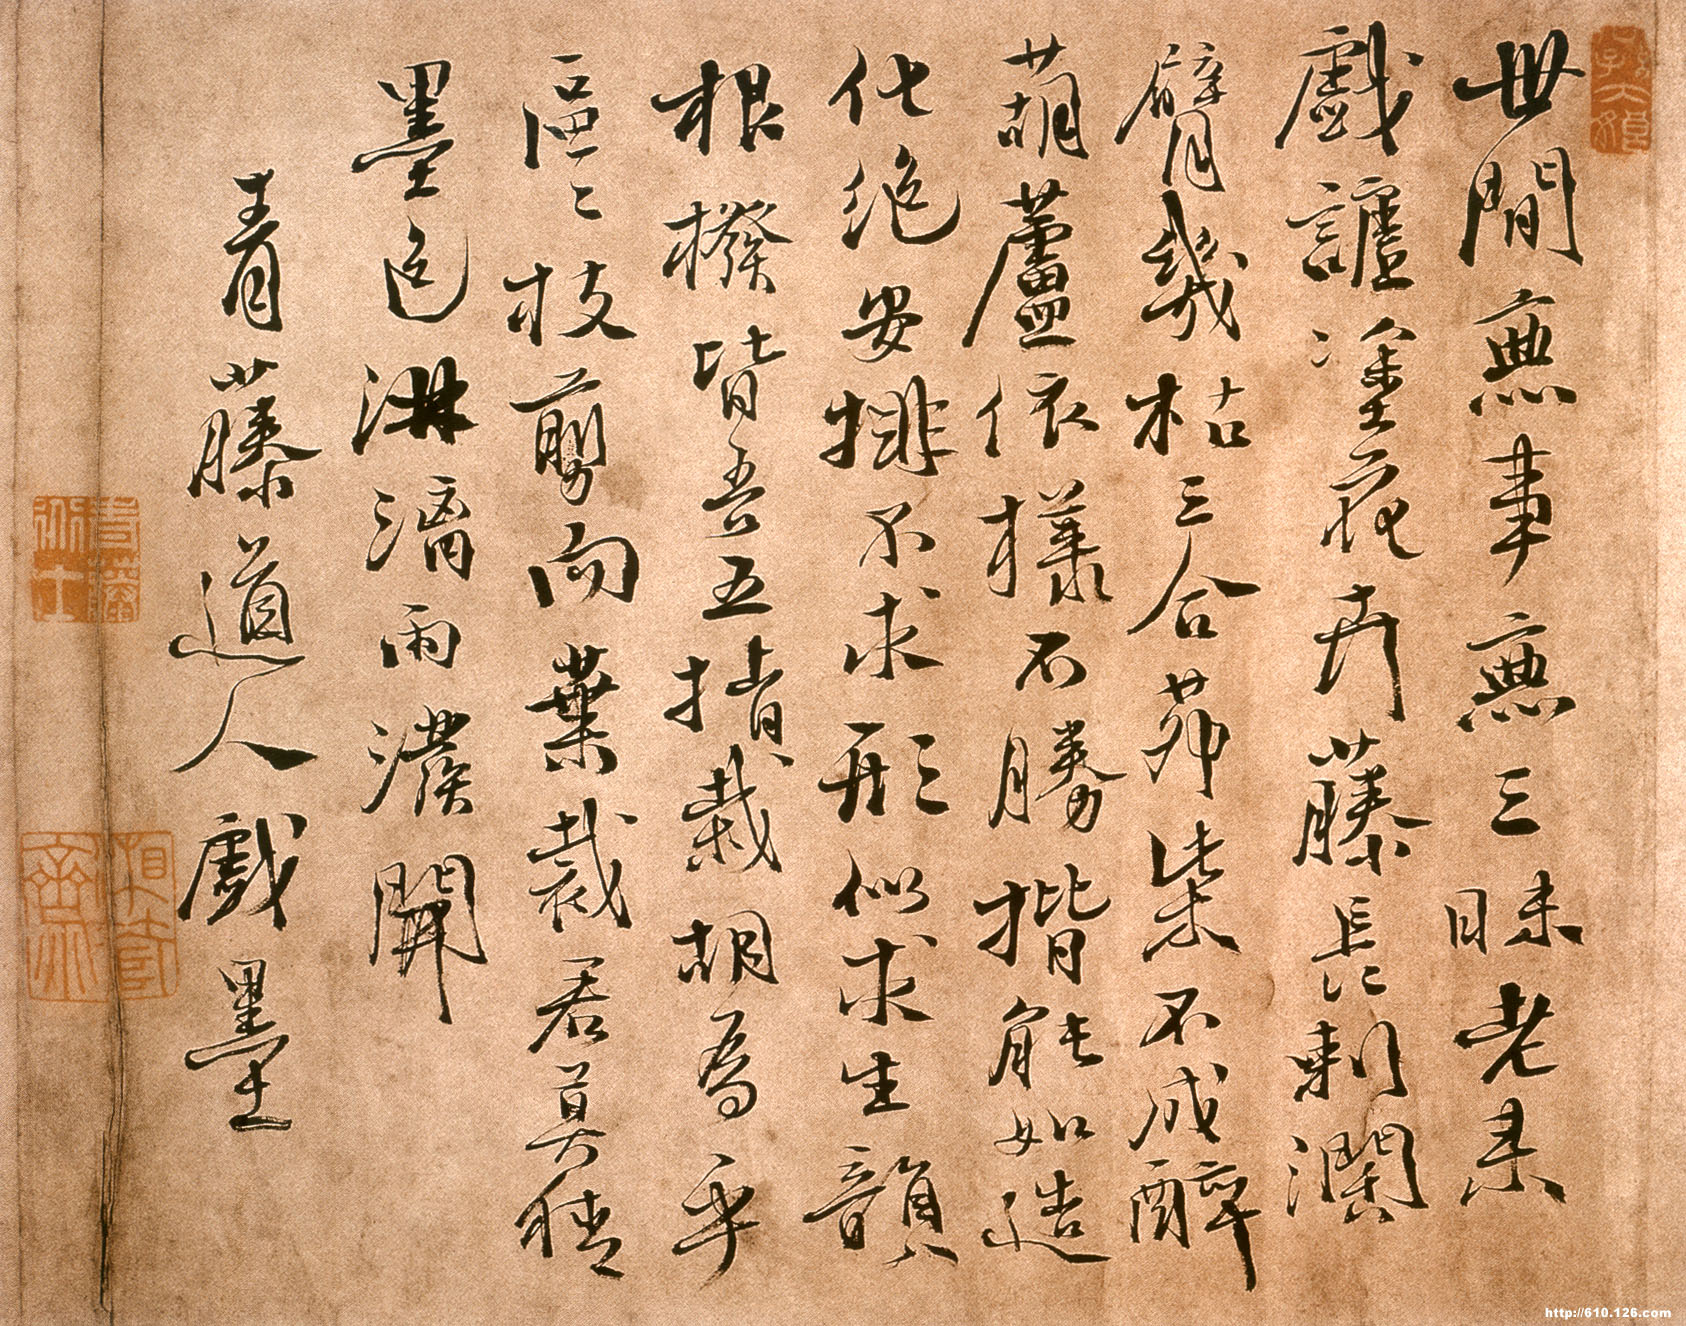 世間無事無三昧老来
戲謔塗花卉藤長刺濶
臂幾枯三合茆柴不成醉
葫蘆依樣不勝揩能如造
化絶安排不求形似求生韻
根撥皆吾五指栽胡為乎
區〻枝剪而葉裁君莫猜
墨色淋漓雨潑開
青藤道人戲墨
http://610.126.com